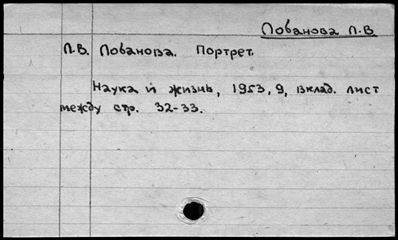 Лобанова Л.В.
Л.В. Лобанова. Портрет.
Наука и жизнь, 1953, 9, вклад. лист
между стр. 32-33.